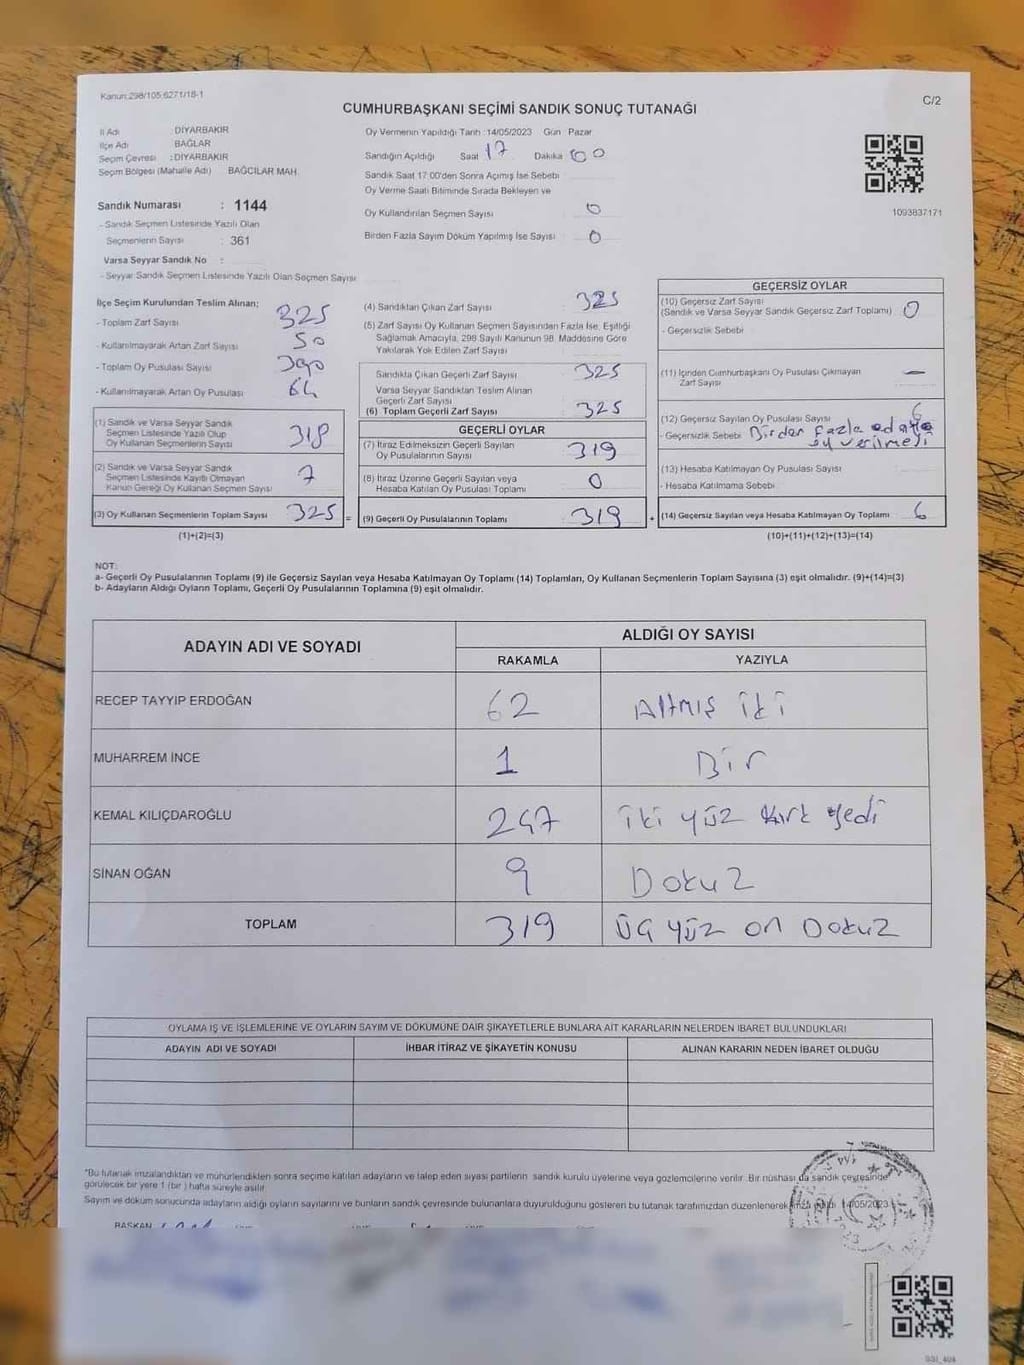 Kanun:298/105,6271/18-1
CUMHURBAŞKANI SEÇİMİ SANDIK SONUÇ TUTANAĞI
C/2
İl Adı : DİYARBAKIR
İlçe Adı : BAĞLAR
Seçim Çevresi : DİYARBAKIR
Seçim Bölgesi (Mahalle Adı) BAĞCILAR MAH.
Sandık Numarası : 1144
- Sandık Seçmen Listesinde Yazılı Olan
Seçmenlerin Sayısı : 361
Varsa Seyyar Sandık No :
- Seyyar Sandık Seçmen Listesinde Yazılı Olan Seçmen Sayısı
Oy Vermenin Yapıldığı Tarih :14/05/2023 Gün Pazar
Sandığın Açıldığı Saat 17 Dakika 00
Sandık Saat 17:00'den Sonra Açımış İse Sebebi
Oy Verme Saati Bitiminde Sırada Bekleyen ve
Oy Kullandırılan Seçmen Sayısı : 0
Birden Fazla Sayım Döküm Yapılmış İse Sayısı : 0
1093837171
İlçe Seçim Kurulundan Teslim Alınan;
- Toplam Zarf Sayısı 325
- Kullanılmayarak Artan Zarf Sayısı 50
- Toplam Oy Pusulası Sayısı 390
- Kullanılmayarak Artan Oy Pusulası 64
(1) Sandık ve Varsa Seyyar Sandık
Seçmen Listesinde Yazılı Olup
Oy Kullanan Seçmenlerin Sayısı 318
(2) Sandık ve Varsa Seyyar Sandık
Seçmen Listesinde Kayıtlı Olmayan
Kanun Gereği Oy Kullanan Seçmen Sayısı 7
(3) Oy Kullanan Seçmenlerin Toplam Sayısı 325 =
(1)+(2)=(3)
(4) Sandıktan Çıkan Zarf Sayısı : 325
(5) Zarf Sayısı Oy Kullanan Seçmen Sayısından Fazla İse, Eşitliği
Sağlamak Amacıyla, 298 Sayılı Kanunun 98. Maddesine Göre
Yakılarak Yok Edilen Zarf Sayısı
Sandıkta Çıkan Geçerli Zarf Sayısı : 325
Varsa Seyyar Sandıktan Teslim Alınan
Geçerli Zarf Sayısı
(6) Toplam Geçerli Zarf Sayısı : 325
GEÇERLİ OYLAR
(7) İtiraz Edilmeksizin Geçerli Sayılan
Oy Pusulalarının Sayısı : 319
(8) İtiraz Üzerine Geçerli Sayılan veya
Hesaba Katılan Oy Pusulası Toplamı : 0
(9) Geçerli Oy Pusulalarının Toplamı : 319 +
GEÇERSİZ OYLAR
(10) Geçersiz Zarf Sayısı
(Sandık ve Varsa Seyyar Sandık Geçersiz Zarf Toplamı) 0
- Geçersizlik Sebebi
(11) İçinden Cumhurbaşkanı Oy Pusulası Çıkmayan
Zarf Sayısı : —
(12) Geçersiz Sayılan Oy Pusulası Sayısı : 6
- Geçersizlik Sebebi Birden fazla adaya
oy verilmeyi
(13) Hesaba Katılmayan Oy Pusulası Sayısı
- Hesaba Katılmama Sebebi
(14) Geçersiz Sayılan veya Hesaba Katılmayan Oy Toplamı : 6
(10)+(11)+(12)+(13)=(14)
NOT:
a- Geçerli Oy Pusulalarının Toplamı (9) ile Geçersiz Sayılan veya Hesaba Katılmayan Oy Toplamı (14) Toplamları, Oy Kullanan Seçmenlerin Toplam Sayısına (3) eşit olmalıdır. (9)+(14)=(3)
b- Adayların Aldığı Oyların Toplamı, Geçerli Oy Pusulalarının Toplamına (9) eşit olmalıdır.
ADAYIN ADI VE SOYADI ALDIĞI OY SAYISI
RAKAMLA YAZIYLA
RECEP TAYYIP ERDOĞAN 62 Altmış iki
MUHARREM İNCE 1 Bir
KEMAL KILIÇDAROĞLU 247 iki yüz kırk yedi
SİNAN OĞAN 9 Dokuz
TOPLAM 319 Üç yüz on Dokuz
OYLAMA İŞ VE İŞLEMLERİNE VE OYLARIN SAYIM VE DÖKÜMÜNE DAİR ŞİKAYETLERLE BUNLARA AİT KARARLARIN NELERDEN İBARET BULUNDUKLARI
ADAYIN ADI VE SOYADI İHBAR İTİRAZ VE ŞİKAYETİN KONUSU ALINAN KARARIN NEDEN İBARET OLDUĞU
"Bu tutanak imzalandıktan ve mühürlendikten sonra seçime katılan adayların ve talep eden siyasi partilerin sandık kurulu üyelerine veya gözlemcilerine verilir. Bir nüshası da sandık çevresinde
görülecek bir yere 1 (bir ) hafta süreyle asılır
Sayım ve döküm sonucunda adayların aldığı oyların sayılarını ve bunların sandık çevresinde bulunanlara duyurulduğunu gösteren bu tutanak tarafımızdan düzenlenerek imza 14/05/2023
BAŞKAN